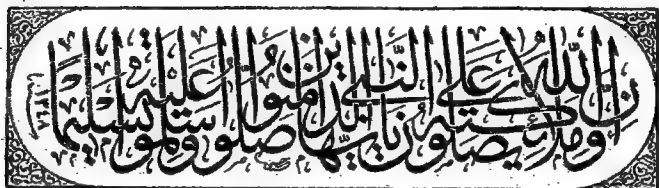 إِنَّ اللّٰهَ وَمَلٰٓئِكَتَهٗ يُصَلُّوْنَ عَلَى النَّبِيِّ يٰٓاَيُّهَا الَّذِيْنَ اٰمَنُوْا صَلُّوْا عَلَيْهِ وَسَلِّمُوْا تَسْلِيْمًا